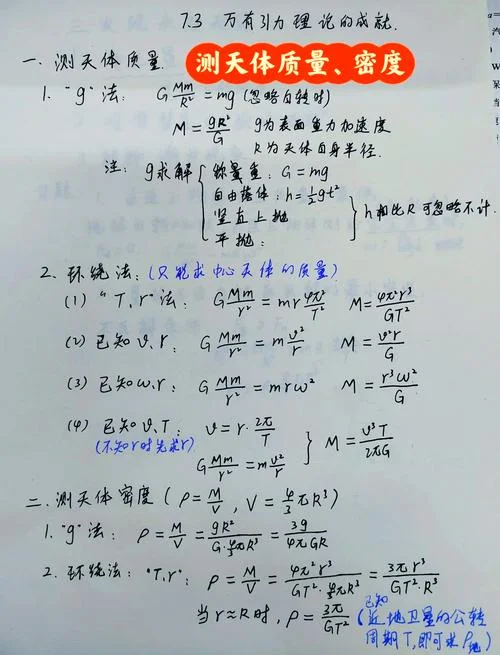 7.3 万有引力理论的成就.
测天体质量、密度
一. 测天体质量.
1. "g"法: G Mm/R² = mg (忽略自转时)
M = gR²/G g为表面重力加速度
R为天体自身半径.
注: g求解 { 称量重: G = mg
自由落体: h = ½gt²
竖直上抛
平抛: } h相比R可忽略不计.
2. 环绕法: (只能求中心天体的质量)
(1) "T,r"法: G Mm/r² = mr 4π²/T² M = 4π²r³/GT²
(2) 已知v,r: G Mm/r² = m v²/r M = v²r/G
(3) 已知ω,r: G Mm/r² = mrω² M = r³ω²/G
(4) 已知v,T: v = r·2π/T
(不知r时先求r) G Mm/r² = m v²/r } M = v³T/2πG
二. 测天体密度 (ρ = M/V, V = 4/3 πR³)
1. "g"法: ρ = M/V = gR²/(G·4/3πR³) = 3g/4πGR
2. 环绕法: "T,r": ρ = M/V = 4π²r³/(GT²·4/3πR³) = 3πr³/(GT²·R³)
当r≈R时, ρ = 3π/GT² (已知近地卫星的公转
周期T,即可求ρ地)